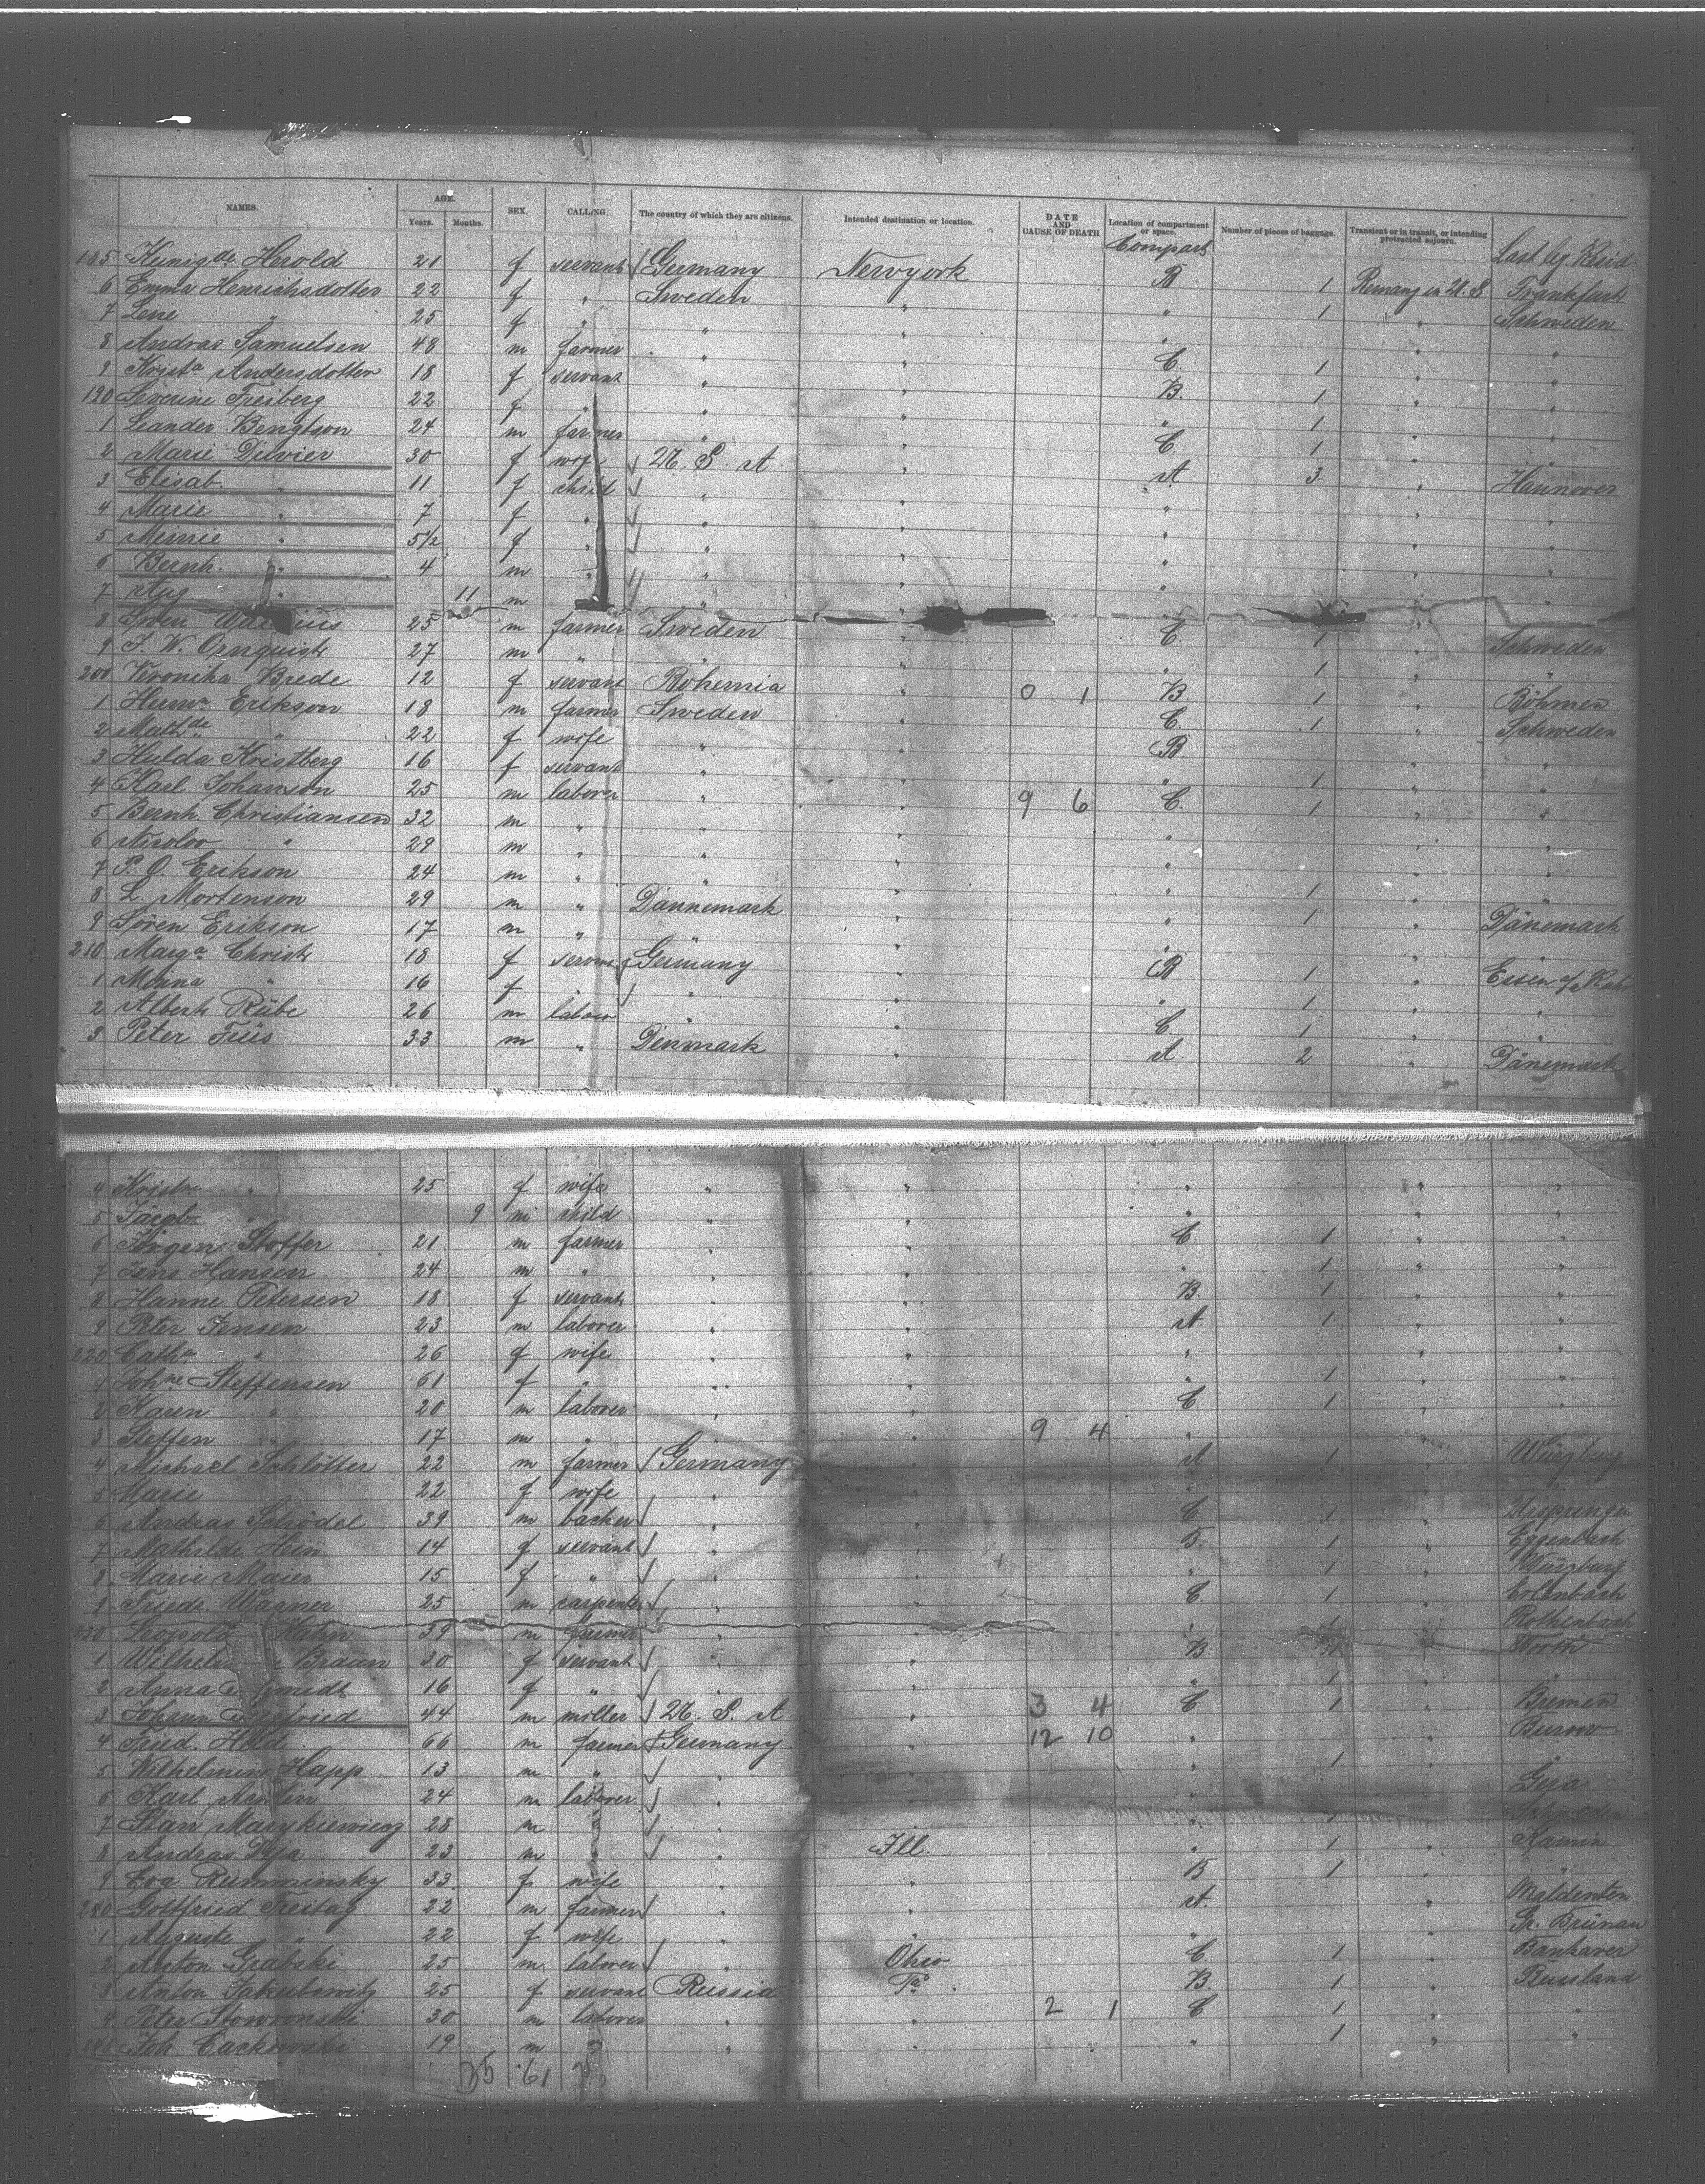 NAMES. AGE. Years. Months. SEX. CALLING. The country of which they are citizens. Intended destination or location. DATE AND CAUSE OF DEATH Location of compartment or space. Number of pieces of baggage. Transient or in transit, or intending protracted sojourn.
Compart Last lg. Resid.
185 Kunigde Herold 21 f servant Germany Newyork B 1 Remang in U.S Frankfurt
6 Emma Henrichsdotter 22 f " Sweden " " 1 " Schweden
7 Lene " 25 f " " "
8 Andras Samuelsen 48 m farmer " " C. 1 " "
9 Krista Andersdotter 18 f servant " " B. 1 " "
190 Severine Freiberg 22 f " " " " 1 " "
1 Leander Bengtson 24 m farmer " " C. 1 " "
2 Marie Duvier 30 f wife U. S. A " A 3 " Hannover
3 Elisab. " 11 f child " " " " "
4 Marie " 7 f " " " " " "
5 Minnie " 5 1/2 f " " " " " "
6 Bernh. " 4 m " " " " " "
7 Aug " 11 m " " " "
8 Swen 25 m farmer Sweden " C. 1 " Schweden
9 J. W. Ornquist 27 m " " " " 1 " "
200 Veronika Brede 12 f servant Bohemia " 0 1 B 1 " Böhmen
1 Herm. Erikson 18 m farmer Sweden " C. 1 " Schweden
2 Mathde " 22 f wife " " B " "
3 Hulda Kristberg 16 f servant " " " 1 " "
4 Karl Johanson 25 m laborer " " 9 6 C. 1 " "
5 Bernh. Christiansen 32 m " " " " " "
6 " 29 m " " " " " "
7 P. O. Erikson 24 m " " " " 1 " "
8 L. Mortenson 29 m " Dannemark " " 1 " Dänemark
9 Sören Erikson 17 m " " " " "
210 Marga Christ 18 f servant Germany " B 1 " Essen a/Ruhr
1 Minna " 16 f " " " " 1 " "
2 Albert Rübe 26 m labour " " C. 1 " "
3 Peter Fiüs 33 m " Denmark " A 2 " Dänemark
4 " 25 f wife " " " " "
5 Jacob " 9 m child " " " " "
6 Jörgen Stoffer 21 m farmer " " C 1 " "
7 Jens Hansen 24 m " " " " 1 " "
8 Hanne Petersen 18 f servant " " B 1 " "
9 Peter Jensen 23 m laborer " " A. 1 " "
220 Catha " 26 f wife " " " " "
1 Johne Steffensen 61 f " " " " 1 " "
2 Karen " 20 m laborer " " C 1 " "
3 Steffen " 17 m " " " 9 4 " "
4 Michael Schlötter 22 m farmer Germany " A 1 " Würzburg
5 Marie 22 f wife " " " "
6 Andras Schödel 39 m backer " " C 1 " Urspringen
7 Mathilde Hein 14 f servant " " B. 1 " Eggenbach
8 Marie Maier 15 f " " " " 1 " Würzburg
9 Friedr. Wagner 25 m carpenter " " C. 1 " Erlenbach
230 Leopold Hahn 39 m farmer " " " 1 " Rothenbach
1 Braun 30 f servant " " B. " Worth
2 Anna 16 f " " " " 1 " "
3 Johann 44 m miller U. S. A " 3 4 C 1 " Bremen
4 Fried. Held 66 m farmer Germany " 12 10 " " Burow
5 Wilhelmine Happ 13 m " " " " 1 " "
6 Karl 24 m laborer " " " " Gera
7 Stan 28 m " " " " Schweden
8 Andras 23 m " Ill. " 1 " Kamin
9 Eva Rumminsky 33 f wife " B 1 " "
240 Gottfried Freitag 22 m farmer " " A. " Maldenten
1 Auguste " 22 f wife " " " Gr. Brünau
2 Anton Grabski 25 m laborer " Ohio C 1 "
3 Anton Jakubowitz 25 f servant Russia Pa. B 1 " Russland
4 Peter Stowronski 30 m laborer " " 2 1 C 1 " "
245 Joh. Cackowski 19 m " " " " 1 " "
35 61